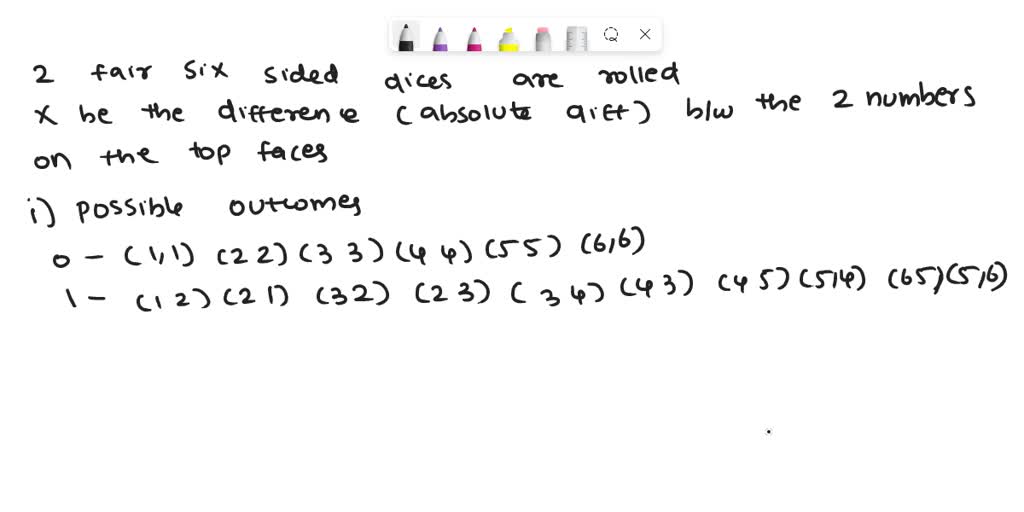 2 fair six sided dices are rolled
X be the difference (absolute diff) b/w the 2 numbers
on the top faces
i) possible outcomes
0 - (1,1) (2 2) (3 3) (4 4) (5 5) (6,6)
1 - (1 2) (2 1) (3 2) (2 3) (3 4) (4 3) (4 5) (5,4) (6 5) (5,6)